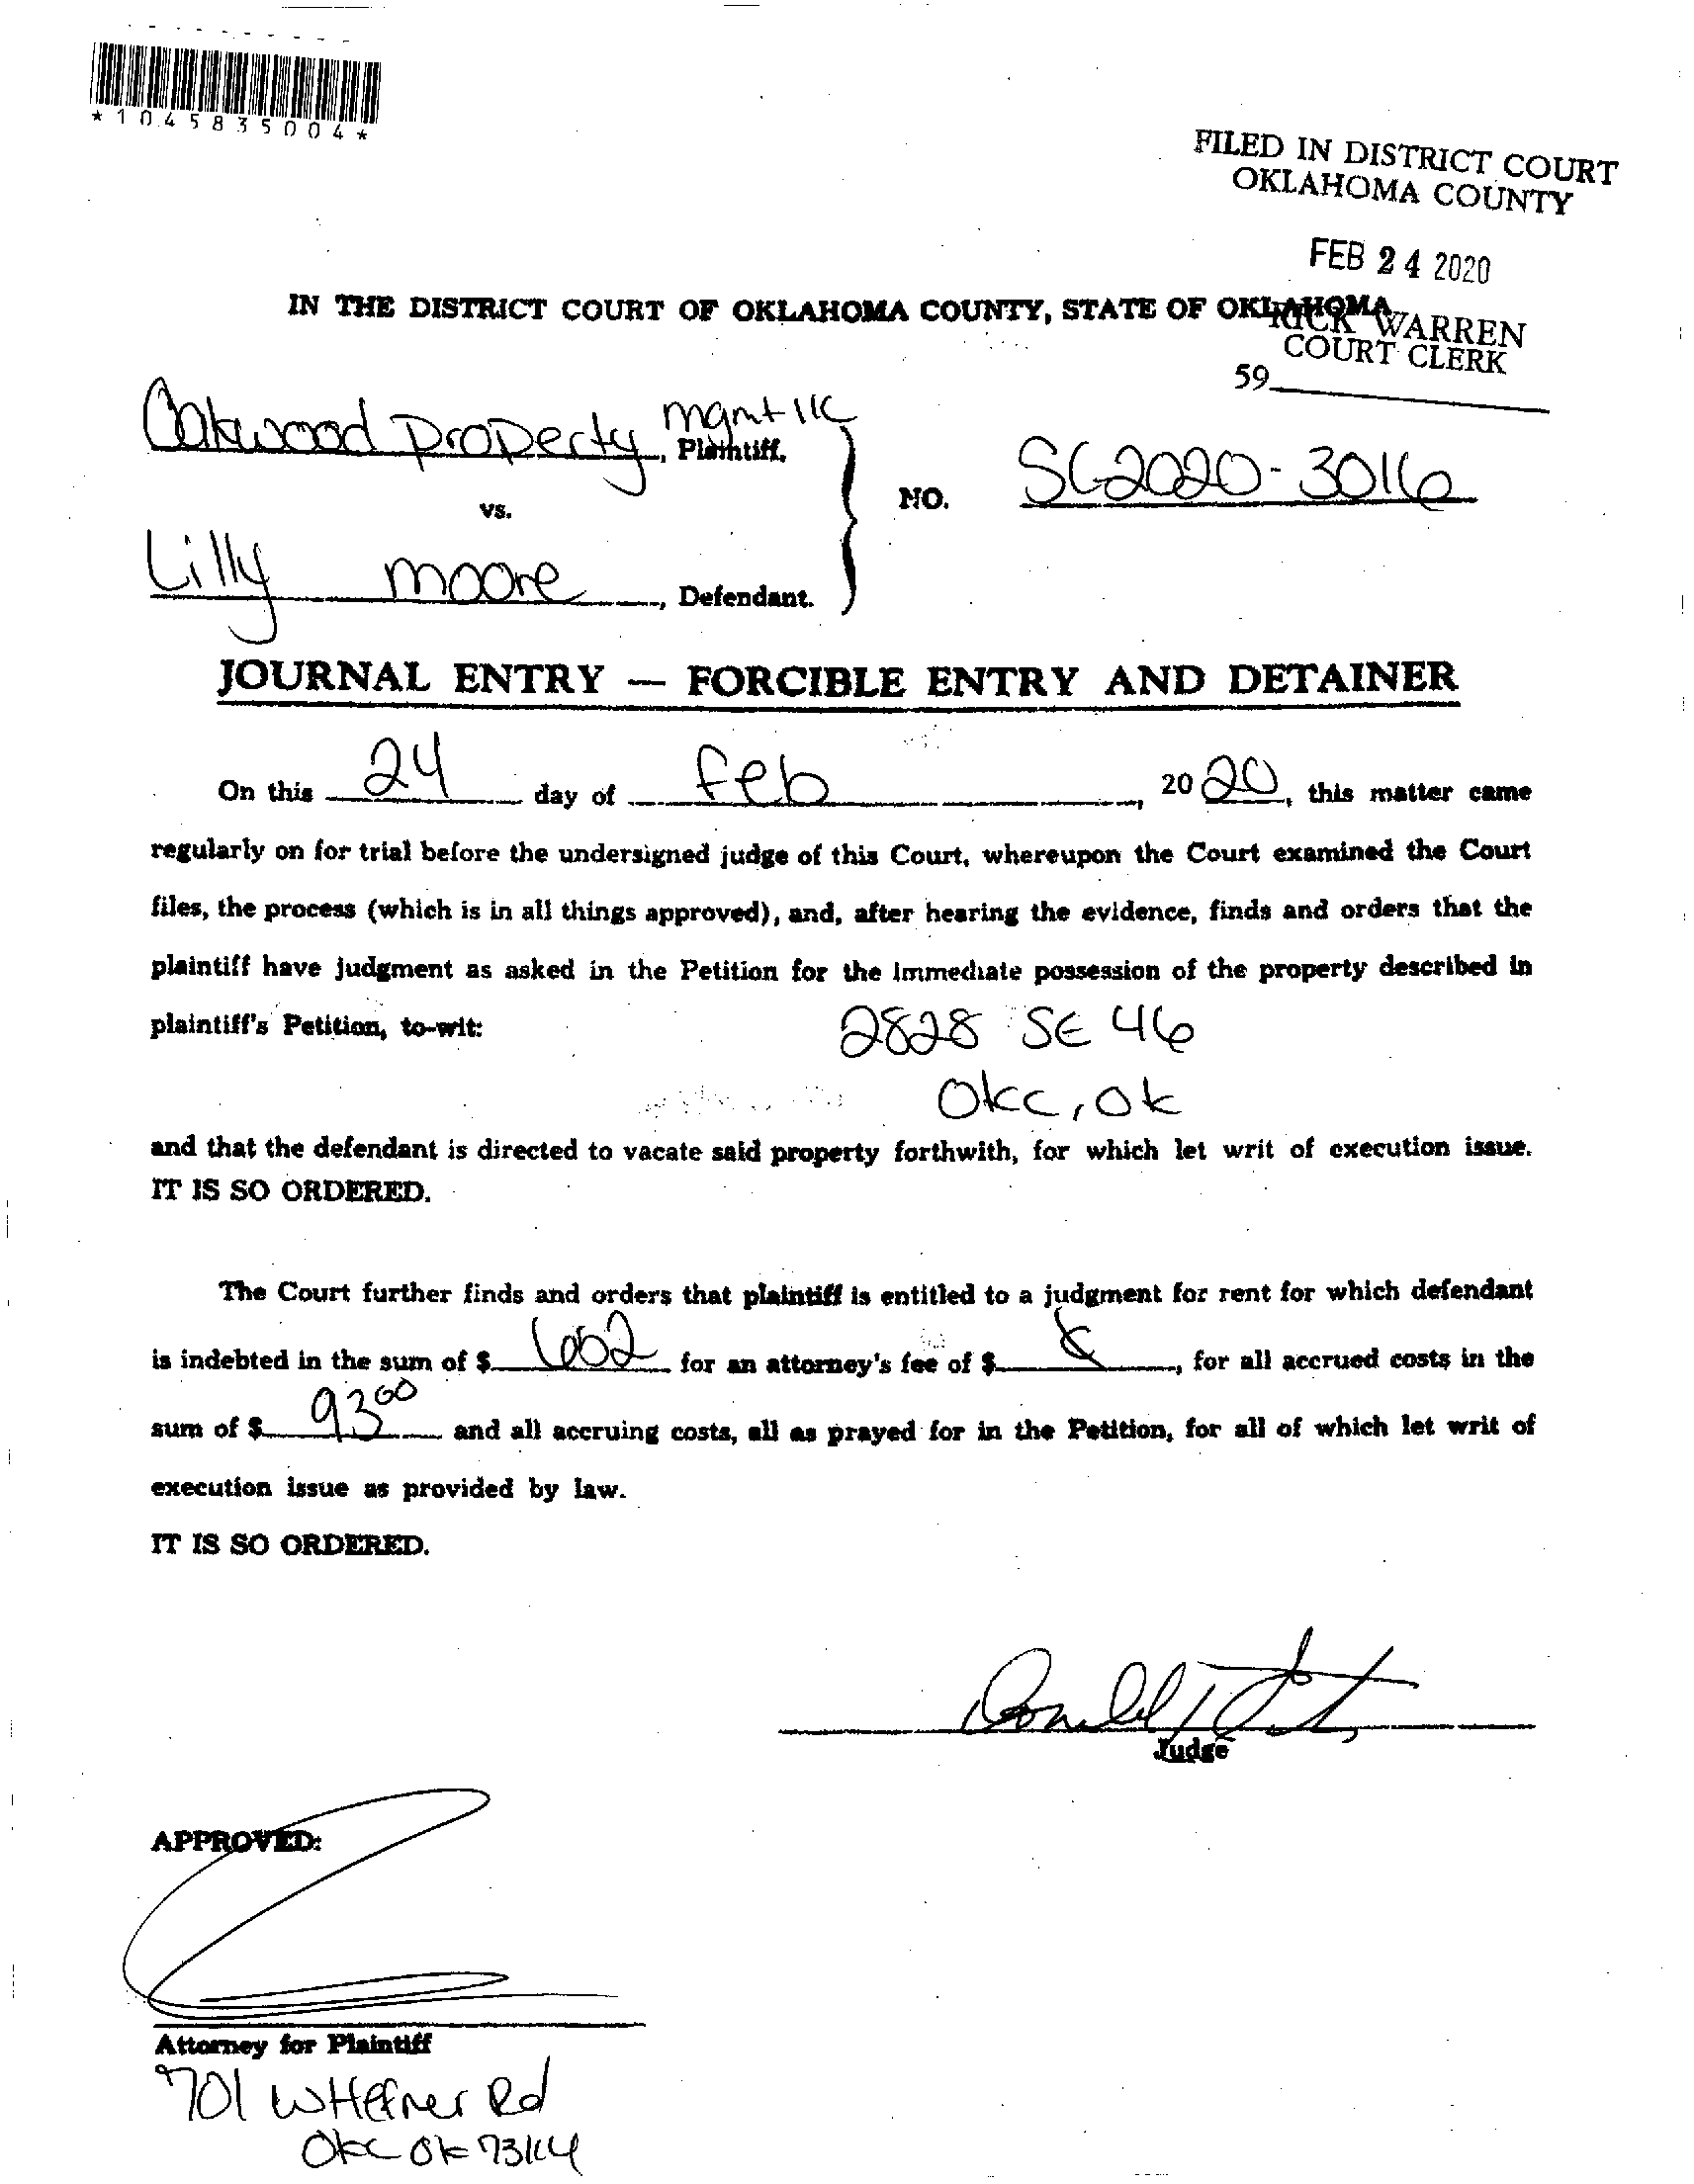 *1045835004*
FILED IN DISTRICT COURT
OKLAHOMA COUNTY
FEB 24 2020
IN THE DISTRICT COURT OF OKLAHOMA COUNTY, STATE OF OKLAHOMA
RICK WARREN
COURT CLERK
59
Oakwood property mgmt llc, Plaintiff,
vs.
NO. SC2020-3016
Lilly moore, Defendant.
JOURNAL ENTRY — FORCIBLE ENTRY AND DETAINER
On this 24 day of Feb, 2020, this matter came
regularly on for trial before the undersigned judge of this Court, whereupon the Court examined the Court
files, the process (which is in all things approved), and, after hearing the evidence, finds and orders that the
plaintiff have judgment as asked in the Petition for the immediate possession of the property described in
plaintiff's Petition, to-wit: 2828 SE 46
OKC, OK
and that the defendant is directed to vacate said property forthwith, for which let writ of execution issue.
IT IS SO ORDERED.
The Court further finds and orders that plaintiff is entitled to a judgment for rent for which defendant
is indebted in the sum of $ 652 for an attorney's fee of $ , for all accrued costs in the
sum of $ 93.00 and all accruing costs, all as prayed for in the Petition, for all of which let writ of
execution issue as provided by law.
IT IS SO ORDERED.
Judge
APPROVED:
Attorney for Plaintiff
701 W Hefner Rd
OKC OK 73114